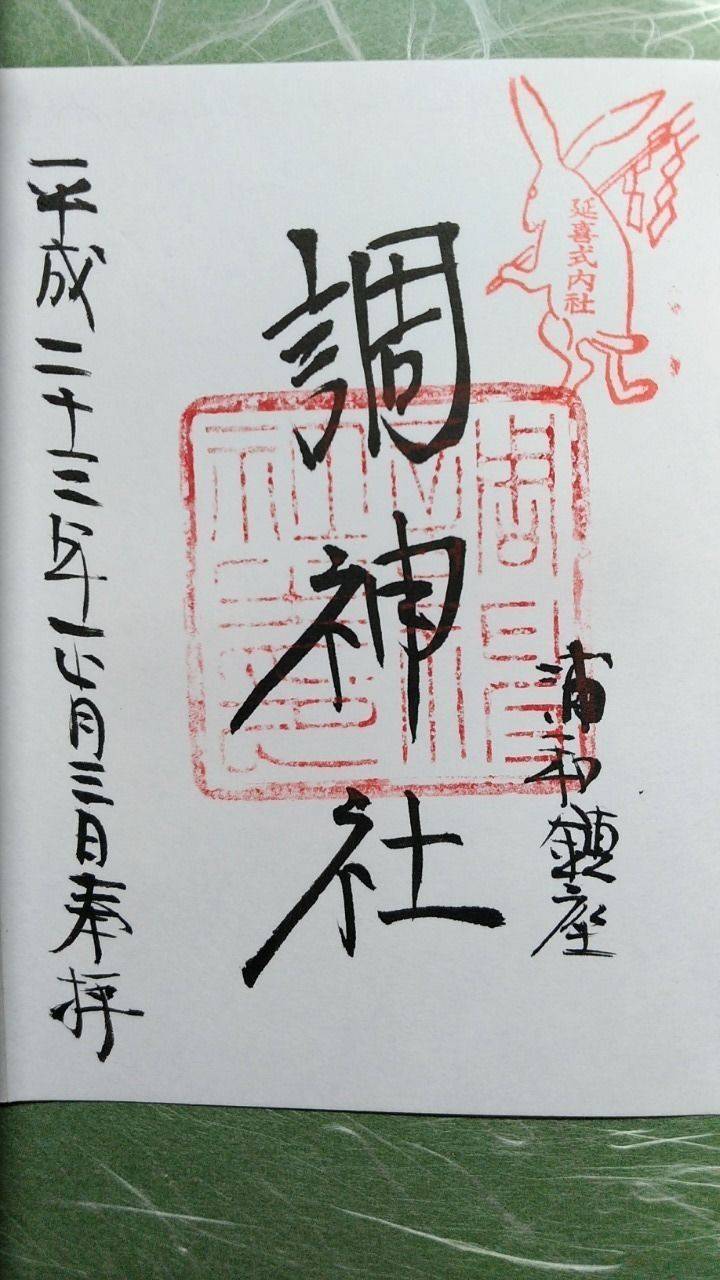 延喜式内社
浦和鎮座
調神社
平成二十三年六月三日奉拝